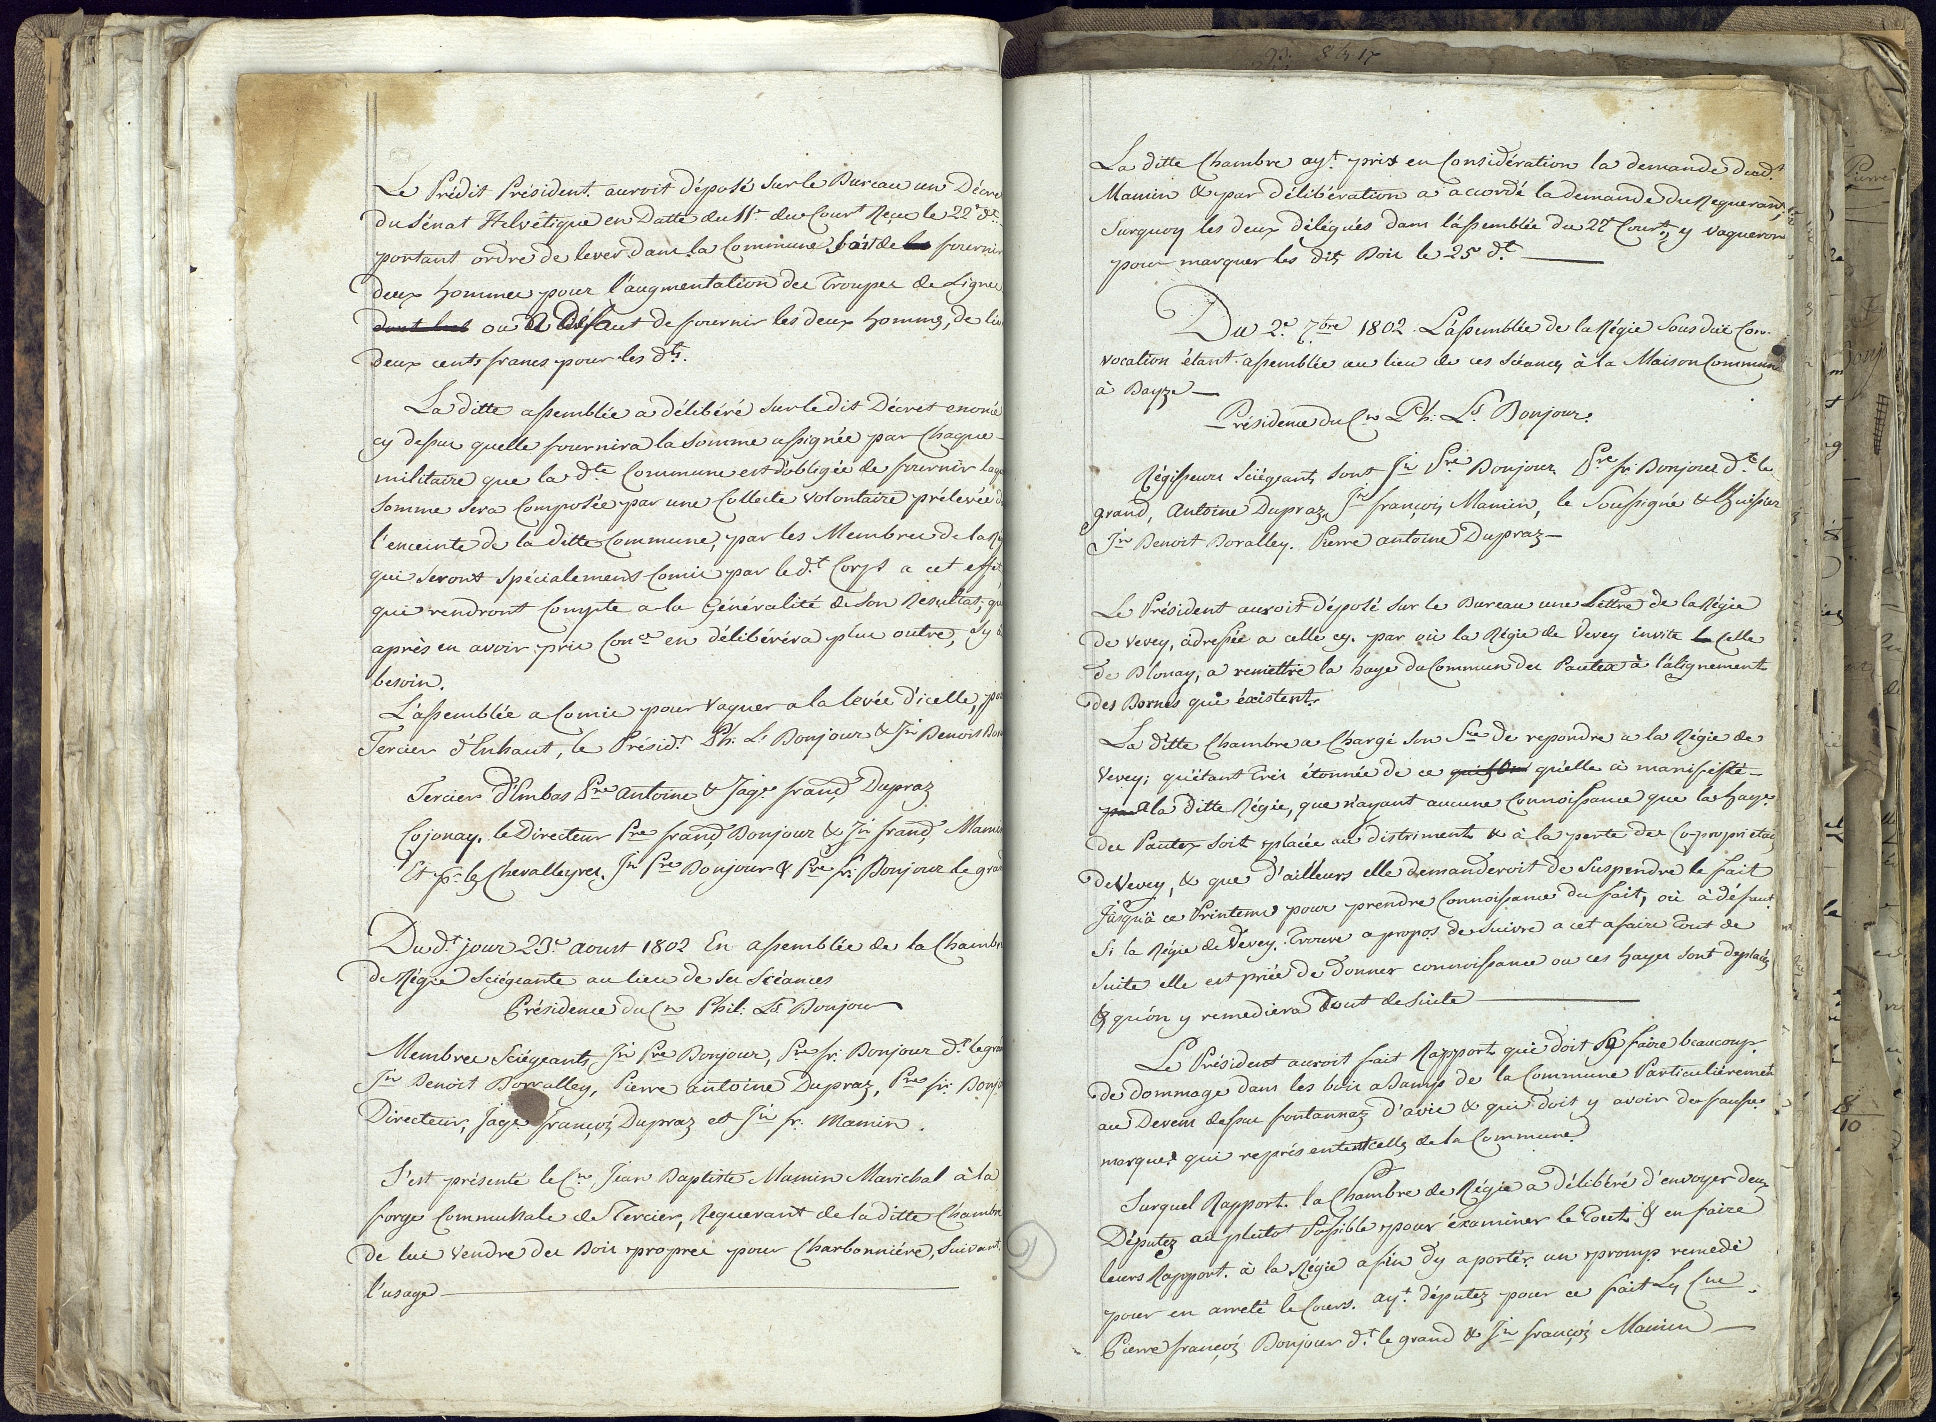 Le Prédit Président auroit déposé sur le Bureau un Décre
du Sénat Helvétique en Datte du 11e du Court Reçu le 22e dt
portant ordre de lever dans la Commune soit de fournir
deux hommes pour l'augmentation des Troupes de Ligne
ou à défaut de fournir les deux hommes, de
deux cents francs pour les dts.
La ditte assemblée a délibéré sur le dit Décret enoncé
cy dessus quelle fournira la Somme assignée par Chaque
militaire que la dte Commune est d'obligée de fournir laqu
Somme sera Composée par une Collecte volontaire prélevée d
l'enceinte de la ditte Commune, par les Membres de la Ré
qui seront spécialement Comis par le dt Corps a cet effet
qui rendront Compte a la Généralité de son Résultat, qu
après en avoir pris Conce en délibérera plus outre, s'y a
besoin.
L'assemblée a Comis pour vaquer a la levée d'icelle, pou
Tercier d'Enhaut, le Présidt Ph: Ls Bonjour & Jn Benoit Bor
Tercier d'Embas Pre Antoine & Jaqe Franç Dupraz
Cojonay, le Directeur Pre Franç Bonjour & Jn Franç Mamin
Et pr les Chevalleyres, Jn Pre Bonjour & Pre fr: Bonjour le grand
Du dt jour 23e aoust 1802 En assemblée de la Chambre
de Régie Sciégeante au lieu de ses Scéances
Présidence du Cn Phil: Ls Bonjour
Membres Sciégeants Jn Pre Bonjour, Pre fr: Bonjour dt le gran
Jn Benoit Borralley, Pierre antoine Dupraz, Pre fr: Bonjo
Directeur, Jaqe François Dupraz et Jn fr: Mamin.
S'est présenté le Cn Jean Baptiste Mamin Marichal à la
forge Communale de Tercier, Requerant de la ditte Chambre
de lui vendre des Bois propres pour Charbonniére, Suivant
l'usage
La ditte Chambre ayt prix en Considération la demande dudt
Mamin & par délibération a accordé la demande du Requerant,
Surquoy les deux délégués dans l'assemblée du 22e Court, y vaqueron
pour marquer les dits Bois le 25 dt
Du 2e 7bre 1802. L'assemblée de la Régie Sous due Con-
vocation étant assemblée au lieu de ces Scéances à la Maison Commune
à Bayze
Présidence du Cn Ph: Ls Bonjour.
Régisseurs Sciégeants sont Jn Pre Bonjour Pre fr: Bonjour dt le
grand, Antoine Dupraz, Jn françois Mamin, le Soussigné & Huissier
Jn Benoit Boralley. Pierre antoine Dupraz
Le Président auroit déposé sur le Bureau une Lettre de la Régie
de Vevey, adressée a celle cy. par où la Régie de Vevey invite celle
de Blonay, a remettre la haye du Commun des Pautex à l'alignement
des Bornes qui éxistent.
La ditte Chambre a Chargé son Sre de repondre a la Régie de
Vevey; qu'étant Très étonnée de ce qu'elle a manifesté
a la ditte Régie, que n'ayant aucune Connoissance que la haye
des Pautex soit placée au distriment & à la perte des Copropriétaires
de Vevey, & que d'ailleurs elle demanderoit de Suspendre le fait
jusqu'à ce Printems pour prendre Connoissance du fait, où à défaut
Si la Régie de Vevey Trouve a propos de suivre a cet afaire Tout de
suite elle est priée de donner connoissance ou ces hayes sont déplacées
& qu'on y remediera Tout de suite
Le Président auroit fait Rapport qu'il doit se faire beaucoup
de dommage dans les bois a Samp de la Commune Particulièrement
au Devens dessus fontannaz d'avis & qui doit y avoir de fausse
marques qui représentent celles de la Commune
Surquel Rapport la Chambre de Régie a délibéré d'envoyer deux
Députez au plutot Possible pour éxaminer le Tout & en faire
leurs Rapport à la Régie afin d'y aporter un promp remede
pour en arreté le Cours. ayt députez pour ce fait Les Cns
Pierre françois Bonjour dt le grand & Jn françois Mamin